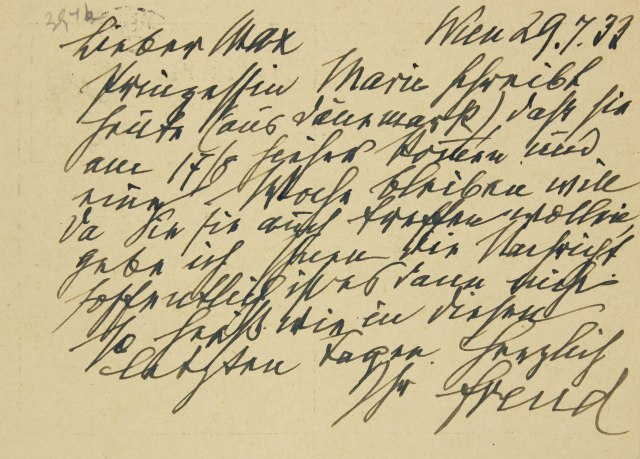 Lieber Max Wien 29.7.32
Prinzessin Marie schreibt
heute (aus Dänemark) daß sie
am 17/8 hieher kommen und
eine Woche bleiben will
da Sie sie auch treffen wollten,
gebe ich Ihnen die Nachricht.
Hoffentlich ist es dann nicht
so heiß wie in diesen
letzten Tagen. Herzlich
Ihr Freud